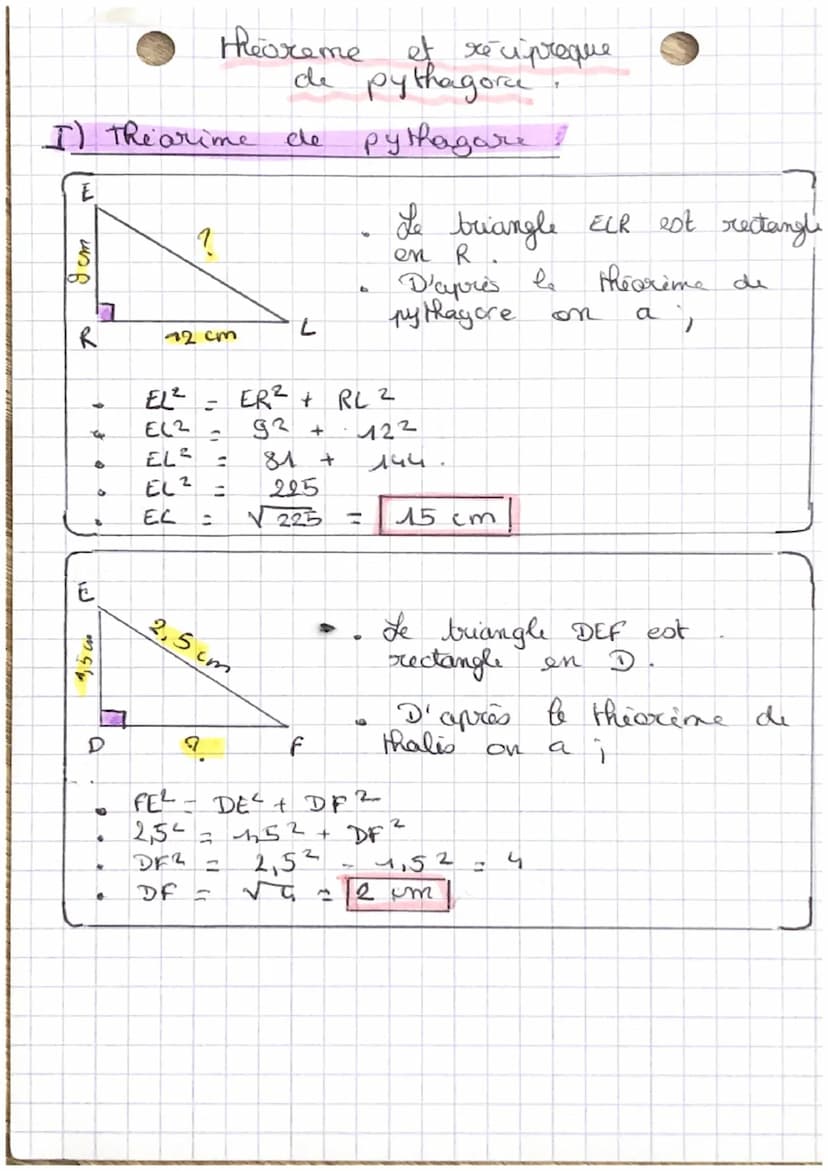 théoreme et réciproque
de pythagore.
I) Théorime de pythagore :
E
?
9 cm
R
12 cm
L
• Le triangle ELR est rectangle
en R.
• D'après le théorème de
pythagore on a ;
• EL² = ER² + RL²
• EL² = 9² + 12²
• EL² = 81 + 144.
• EL² = 225
• EL = √225 = 15 cm
E
2,5 cm
1,5 cm
D
?
F
• Le triangle DEF est
rectangle en D.
• D'après le théorème de
thalès on a ;
• FE² = DE² + DF²
• 2,5² = 1,5² + DF²
• DF² = 2,5² - 1,5² = 4
• DF = √4 = 2 cm